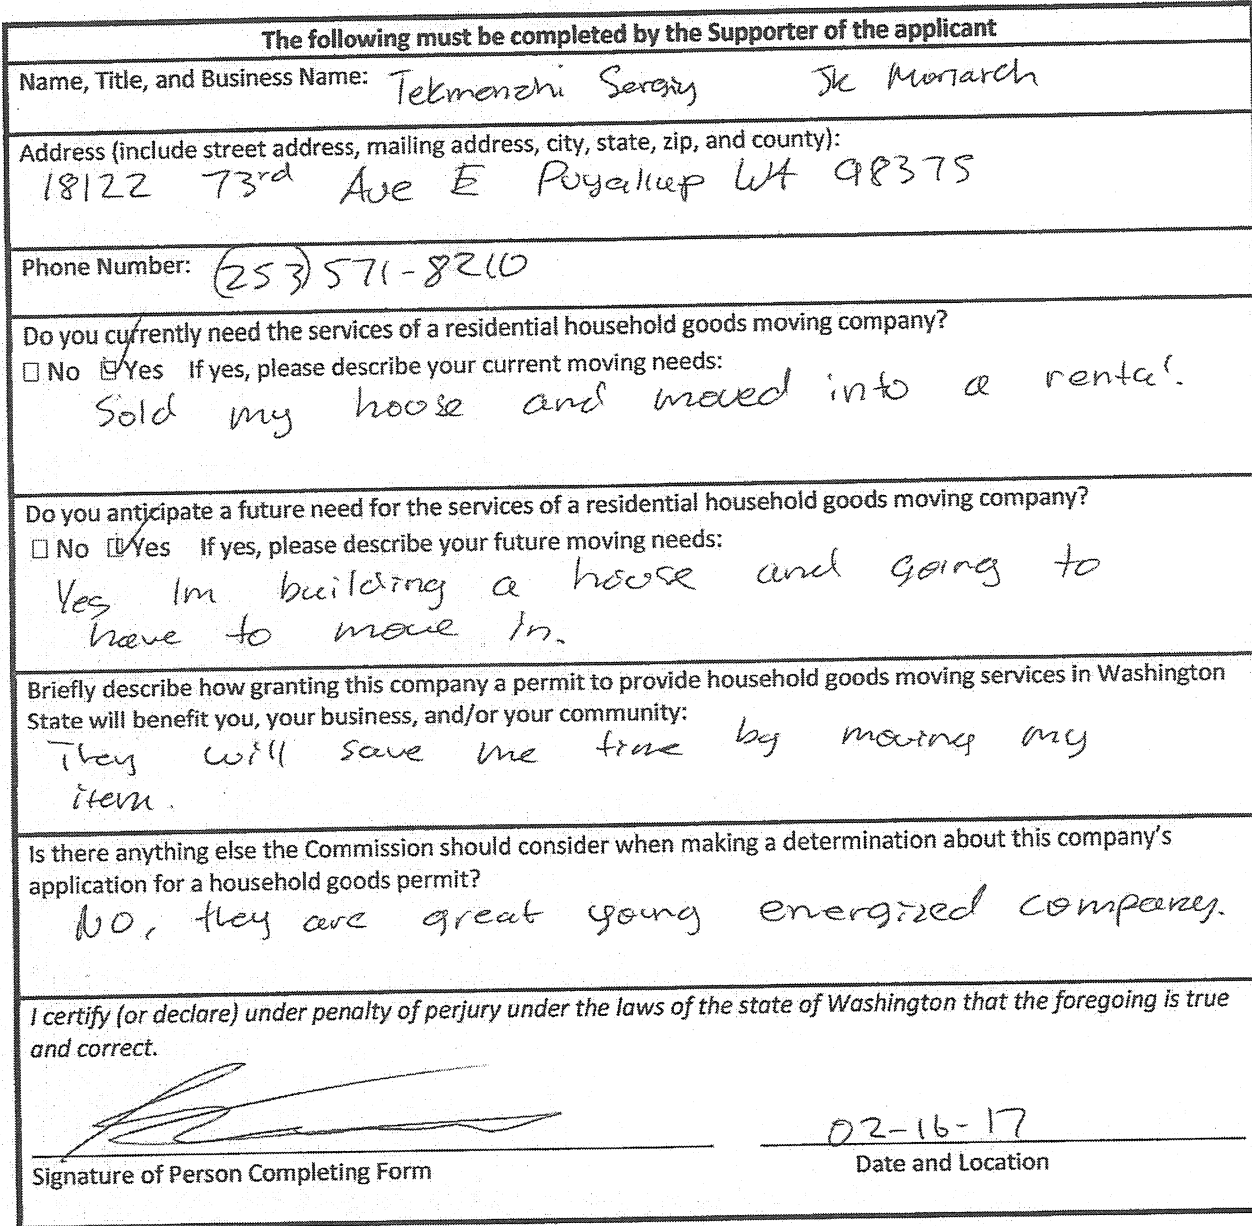 The following must be completed by the Supporter of the applicant
Name, Title, and Business Name: Tekmenzhi Sergiy JK Monarch
Address (include street address, mailing address, city, state, zip, and county):
18122 73rd Ave E Puyallup WA 98375
Phone Number: (253) 571-8210
Do you currently need the services of a residential household goods moving company?
☐ No ☑ Yes If yes, please describe your current moving needs:
Sold my hoose and moved into a rental.
Do you anticipate a future need for the services of a residential household goods moving company?
☐ No ☑ Yes If yes, please describe your future moving needs:
Yes Im building a house and going to
have to move in.
Briefly describe how granting this company a permit to provide household goods moving services in Washington
State will benefit you, your business, and/or your community:
They will save me time by moving my
item.
Is there anything else the Commission should consider when making a determination about this company's
application for a household goods permit?
NO, they are great young energized company.
I certify (or declare) under penalty of perjury under the laws of the state of Washington that the foregoing is true
and correct.
02-16-17
Signature of Person Completing Form Date and Location